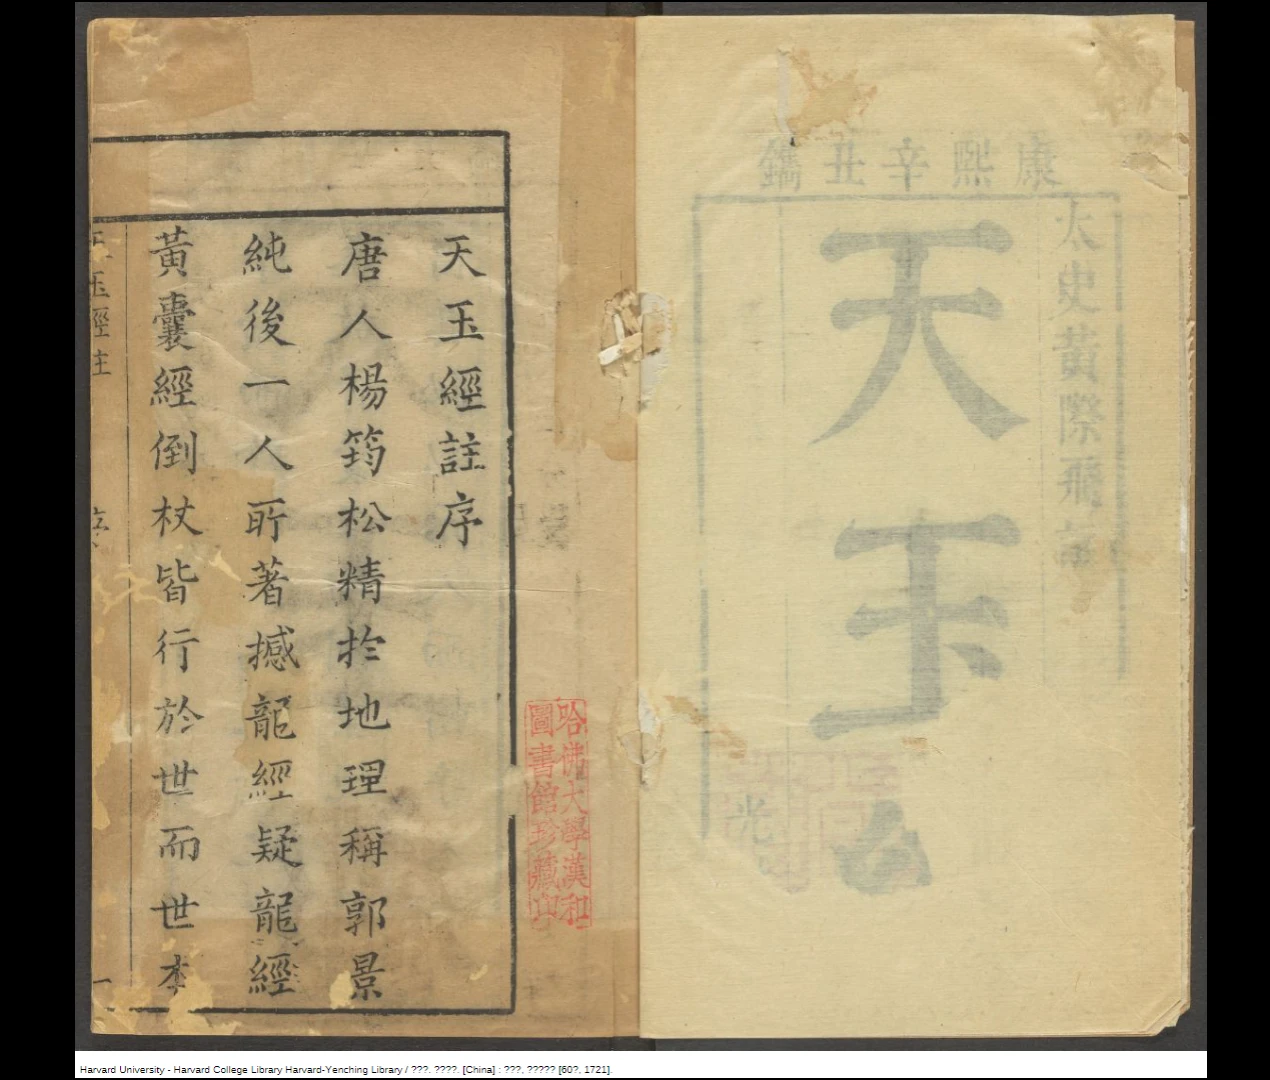 康熙辛丑鐫
太史黃際飛
天玉
天玉經註序
唐人楊筠松精於地理稱郭景
純後一人所著撼龍經疑龍經
黃囊經倒杖皆行於世而世本
玉經註
序
一
哈佛大學漢和
圖書館珍藏印
Harvard University - Harvard College Library Harvard-Yenching Library / ???. ????. [China] : ???, ????? [60?, 1721].